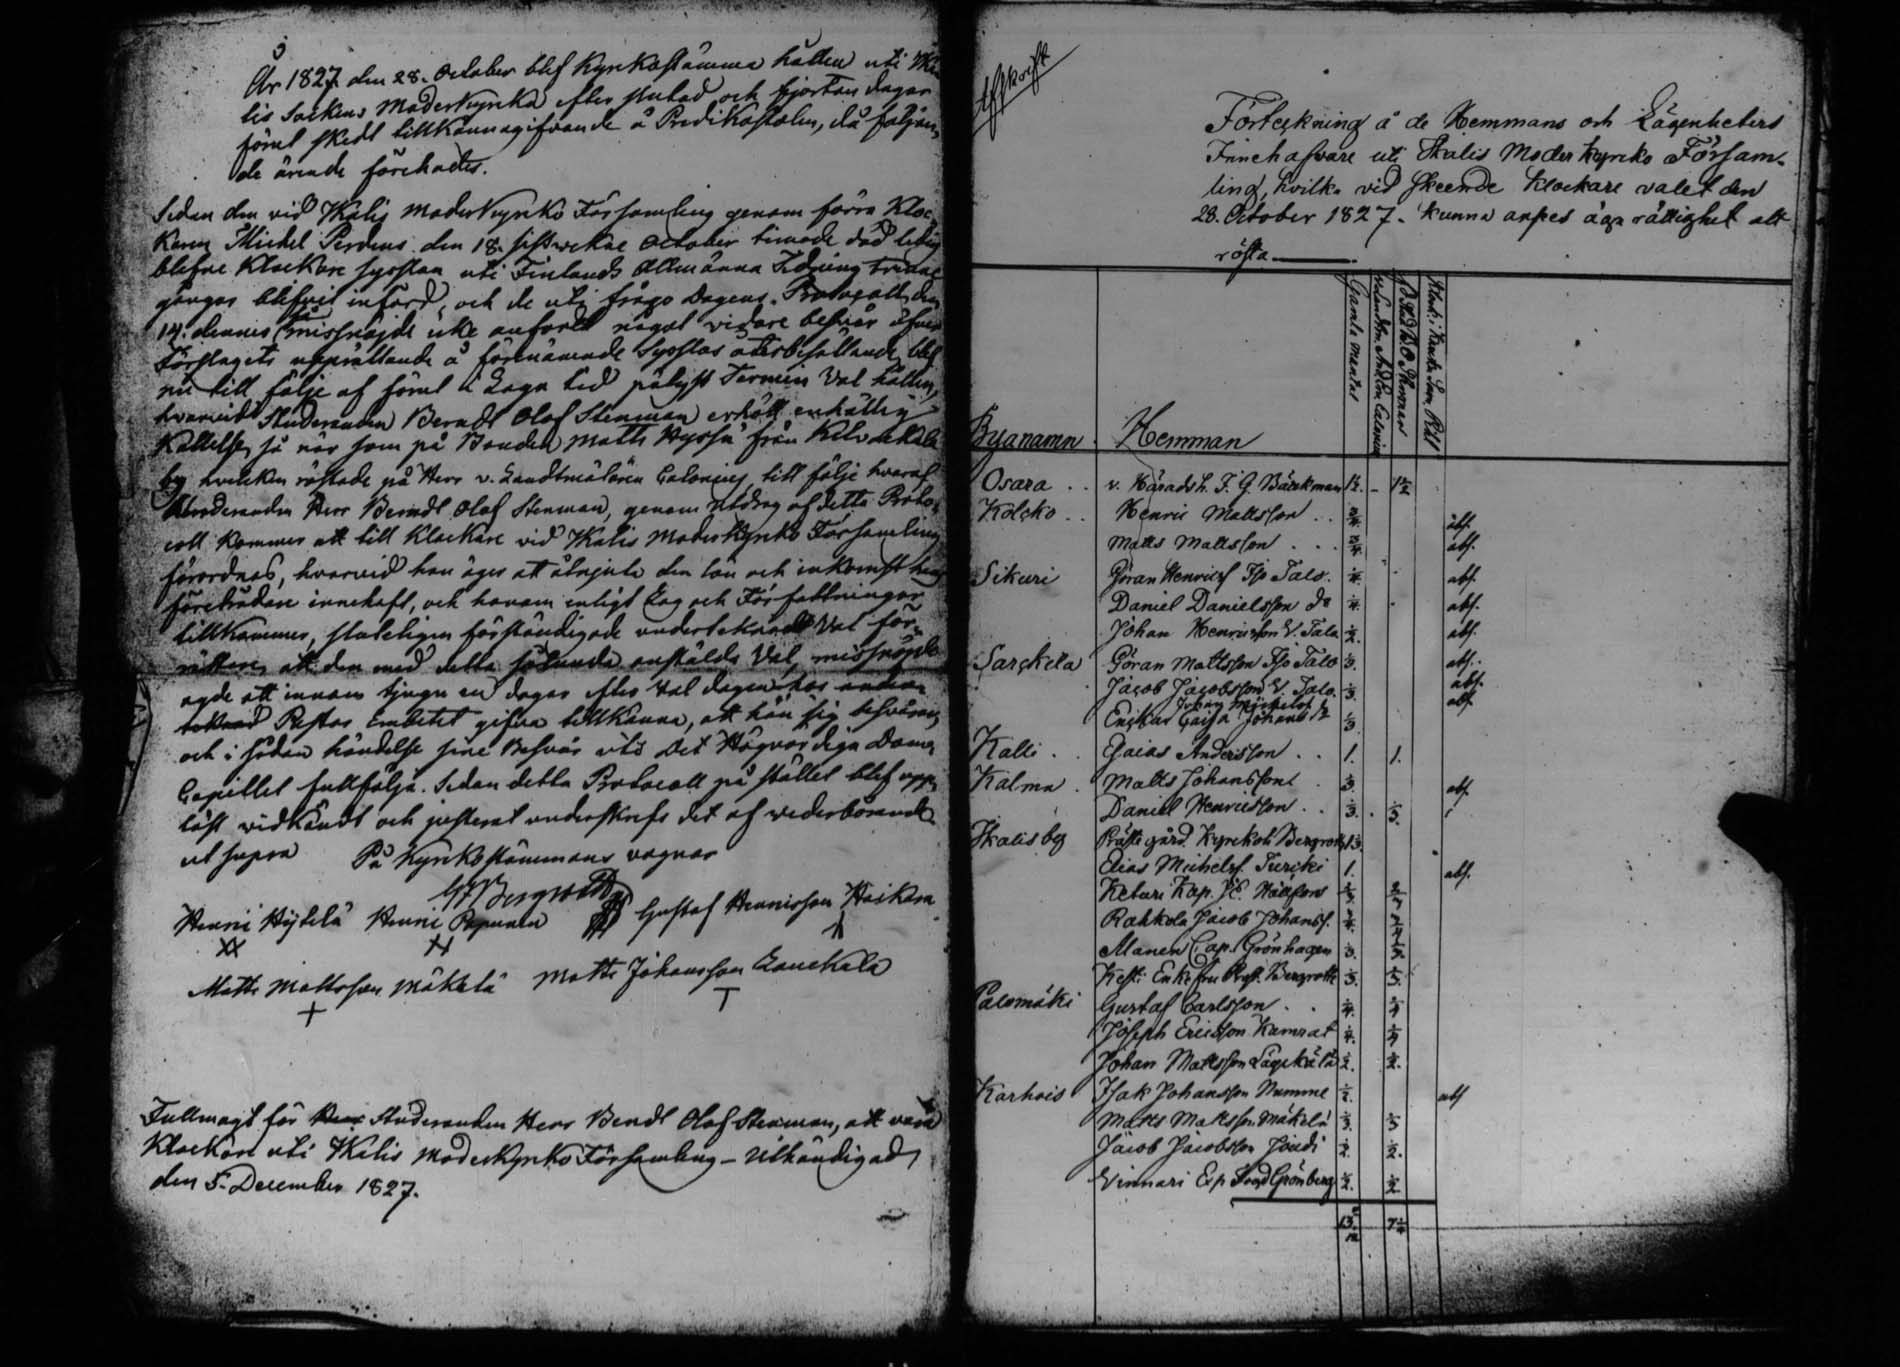 År 1827 den 28. October blef Kyrkostämma hållen uti Ika-
lis Sockens Moderkyrka efter slutad och fjorton dagar
förut skedt tillkännagifvande å Predikostolen, då följan-
de ärende förehades.
Sedan den vid Ikalis Moderkyrko Församling genom förra Kloc-
karen Michel Perdens den 18. October timade död ledig
blefne Klockare Sysslan uti Finlands Allmänna Tidning trenne
gångor blifvit införd, och de uti frågo Dagens Protocoll den
14. dennes missnöjde icke anfört något vidare besvär öfver
Förslagets upprättande å förenämnde Sysslas återbesättande, blef
nu till följe af förut i Laga tid pålyst Termin Val hållen,
hvarvid Studeranden Berndt Olof Stenman erhöll enhällig
Kallelse, så när som på Bonden Matts Hyssä från
by hvilken röstade på Herr v. Landtmätaren Calonius, till följe hvaraf
Studeranden Herr Berndt Olof Stenman, genom Utdrag af detta Proto-
coll kommer att till Klockare vid Ikalis Moderkyrko Församling
förordnas, hvarvid han äger att åtnjuta den lön och inkomst hans
företrädare innehaft, och honom enligt Lag och Författningar
tillkommer, slutligen förständigade undertecknad Val för-
rättare, att den med detta sålunda anstälde Val, missnöjde
ägde att innom tjugu en dagar efter Val dagen hos
Pastors Embetet gifva tillkänna, att han sig besvärar,
och i sådan händelse sine Besvär uti Det Högvördiga Dom-
Capitlet fullfölja. Sedan detta Protocoll på stället blef upp-
läst vidkändt och justerat underskrefs det af vederbörande
ut supra På Kyrkostämmans vägnar
Bergroth
Henric Hyÿtilä Henric Papunen Gustaf Henricsson Heikari
Matts Mattsson Mäkelä Matts Johansson Lauckala
Fullmagt för Studeranden Herr Bendt Olof Stenman, att vara
Klockare uti Ikalis Moderkyrko Församling – Uthändigad
den 5. December 1827.
Afskrift
Förteckning å de Hemmans och Lägenheters
Innehafvare uti Ikalis Moder Kyrko Försam-
ling, hvilka vid skeende Klockare valet den
28. October 1827. kunna anses äga rättighet att
rösta
Byanamn. Hemman Gamla mantal
Osara . . v. Häradsh. F. G. Bäckman 1½. – 1½
Kolcko . . Henric Mattsson . . ¾. abs.
Matts Mattsson . . . ¾. abs.
Sikuri Göran Henricss. Iso Talo. ¼. abs.
Daniel Danielsson do ¼. abs.
Johan Henricsson V. Talo ½. abs.
Sarckela Göran Mattsson Iso Talo ⅓. abs.
Jacob Jacobsson V. Talo. ⅓. abs.
Johan Michelss.
Enckan Caisa Johansd. ⅓ abs.
Kalli . Esaias Andersson . . 1. 1.
Kalma . Matts Johansson . ⅓. abs.
Daniel Henricsson . . ⅓. ⅓.
Ikalis by Präste gård. Kyrkoh. Bergroth 1⅓.
Elias Michelss. Turcki 1. abs.
Keturi Kap.
Rahkola Jacob Johanss. ¾. ¾
Manen Cap. Grönhagen ⅓. ⅓.
Kesti Enkefru Prost. Bergroth ⅓. ⅓.
Palomäki Gustaf Carlsson . . ¼. ¼
Joseph Ericsson Kamrat ¼. ¼
Johan Mattsson ½. ½.
Karhois Isak Johansson Numme ½. abs
Matts Mattsson Mäkelä ⅓. ⅓
Jacob Jacobsson Joudi ½. ½.
Vinnari Exp Grönberg ½. ½